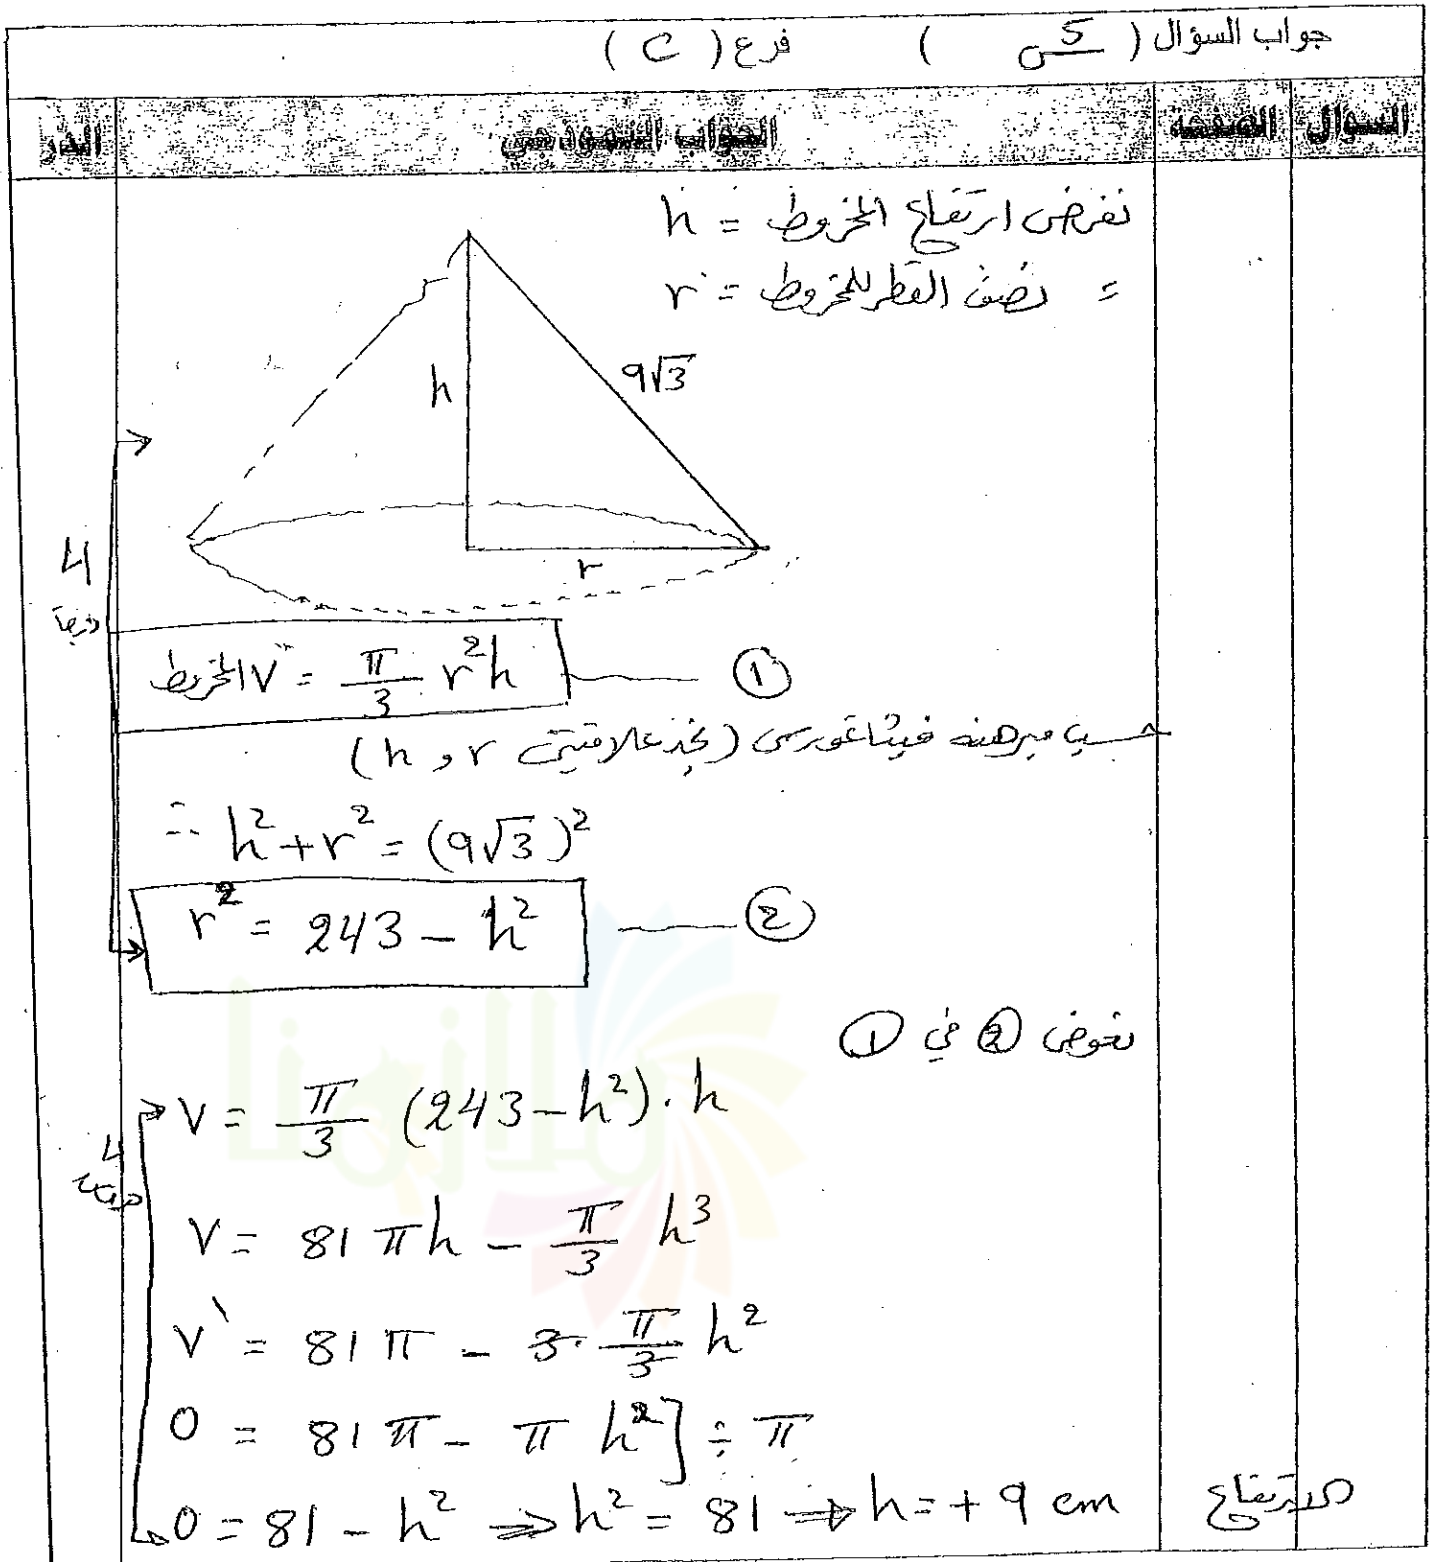 جواب السؤال ( 5 س ) فرع ( C )
السؤال الصفحة الجواب النموذجي الدر
نفرض ارتفاع المخروط = h
= نصف القطر للمخروط = r
h
9√3
r
4
V المخروط = π/3 r²h ——— ①
حسب مبرهنه فيثاغورس (نجد علاقة بين r و h)
∴ h² + r² = (9√3)²
r² = 243 – h² ——— ②
نعوض ② في ①
V = π/3 (243 – h²) . h
4
V = 81 π h – π/3 h³
V\ = 81 π – 3 . π/3 h²
0 = 81 π – π h² ] ÷ π
0 = 81 – h² ⇒ h² = 81 ⇒ h = + 9 cm الارتفاع
ملازمنا